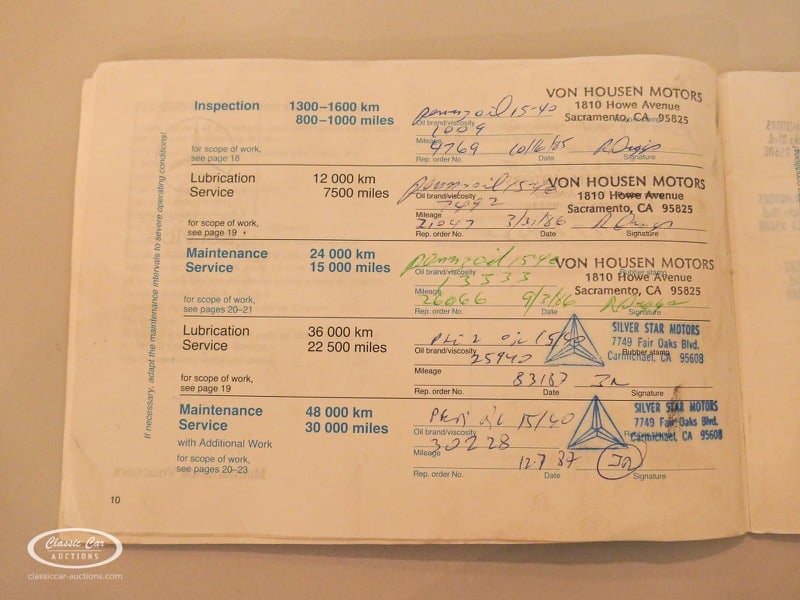 If necessary, adapt the maintenance intervals to severe operating conditions!
Inspection 1300–1600 km
800–1000 miles
for scope of work,
see page 18
pennzoil 15-40
Oil brand/viscosity
1009
Mileage
4769 10/6/85
Rep. order No. Date Signature
VON HOUSEN MOTORS
1810 Howe Avenue
Sacramento, CA 95825
Lubrication 12 000 km
Service 7500 miles
for scope of work,
see page 19
pennzoil 15-40
Oil brand/viscosity
7492
Mileage
21047 3/31/86
Rep. order No. Date Signature
VON HOUSEN MOTORS
1810 Howe Avenue
Sacramento, CA 95825
Maintenance 24 000 km
Service 15 000 miles
for scope of work,
see pages 20–21
pennzoil 15-40
Oil brand/viscosity
13533
Mileage
26066 9/3/86
Rep. order No. Date Signature
VON HOUSEN MOTORS
Rubber stamp
1810 Howe Avenue
Sacramento, CA 95825
Lubrication 36 000 km
Service 22 500 miles
for scope of work,
see page 19
15/40
Oil brand/viscosity
25940
Mileage
83187
Rep. order No. Date Signature
SILVER STAR MOTORS
7749 Fair Oaks Blvd.
Carmichael, CA 95608
Rubber stamp
Maintenance 48 000 km
Service 30 000 miles
with Additional Work
for scope of work,
see pages 20–23
15/40
Oil brand/viscosity
30228
Mileage
12.7 87
Rep. order No. Date Signature
SILVER STAR MOTORS
7749 Fair Oaks Blvd.
Carmichael, CA 95608
10
Classic Car
AUCTIONS
classiccar-auctions.com